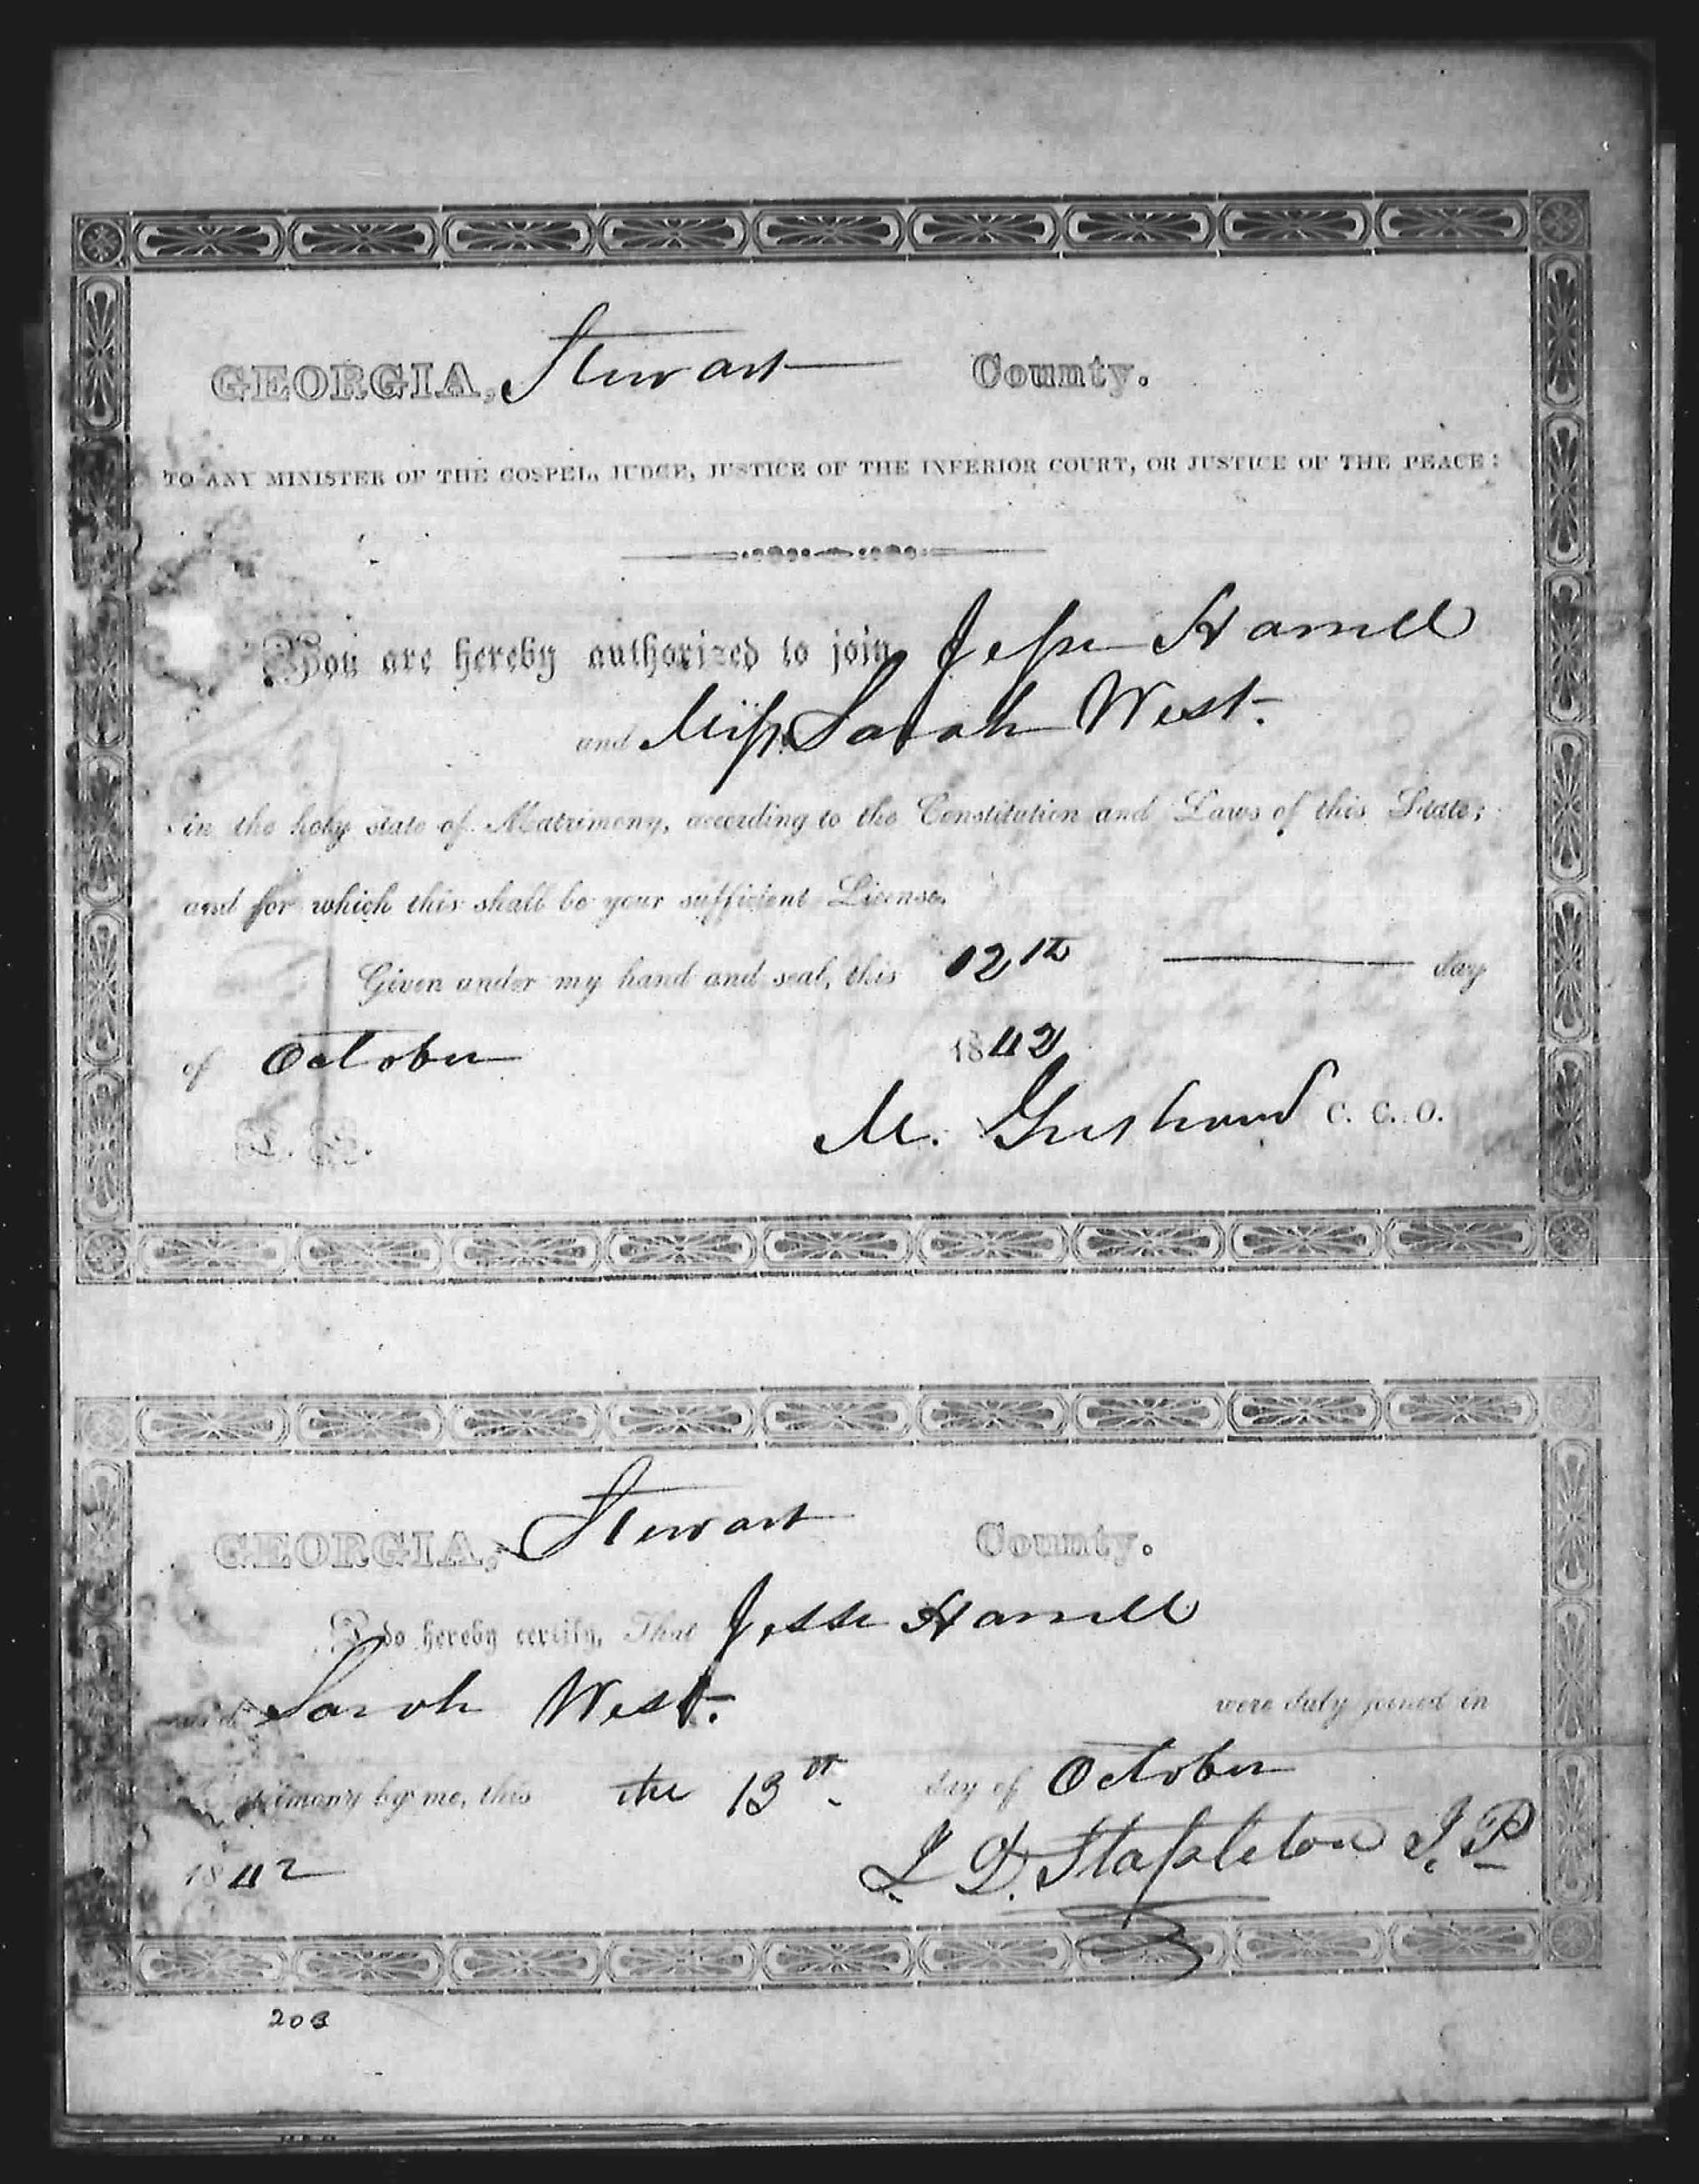 GEORGIA, Stewart County.
TO ANY MINISTER OF THE GOSPEL, JUDGE, JUSTICE OF THE INFERIOR COURT, OR JUSTICE OF THE PEACE:
You are hereby authorized to join Jesse Harrell
and Miss Sarah West.
in the holy state of Matrimony, according to the Constitution and Laws of this State;
and for which this shall be your sufficient License.
Given under my hand and seal, this 12th day
of October 1842
L. S. M. C. C. O.
GEORGIA, Stewart County.
I do hereby certify, That Jesse Harrell
and Sarah West. were duly joined in
Matrimony by me, this the 13th day of October
1842 L. D. Stapleton J. P.
203